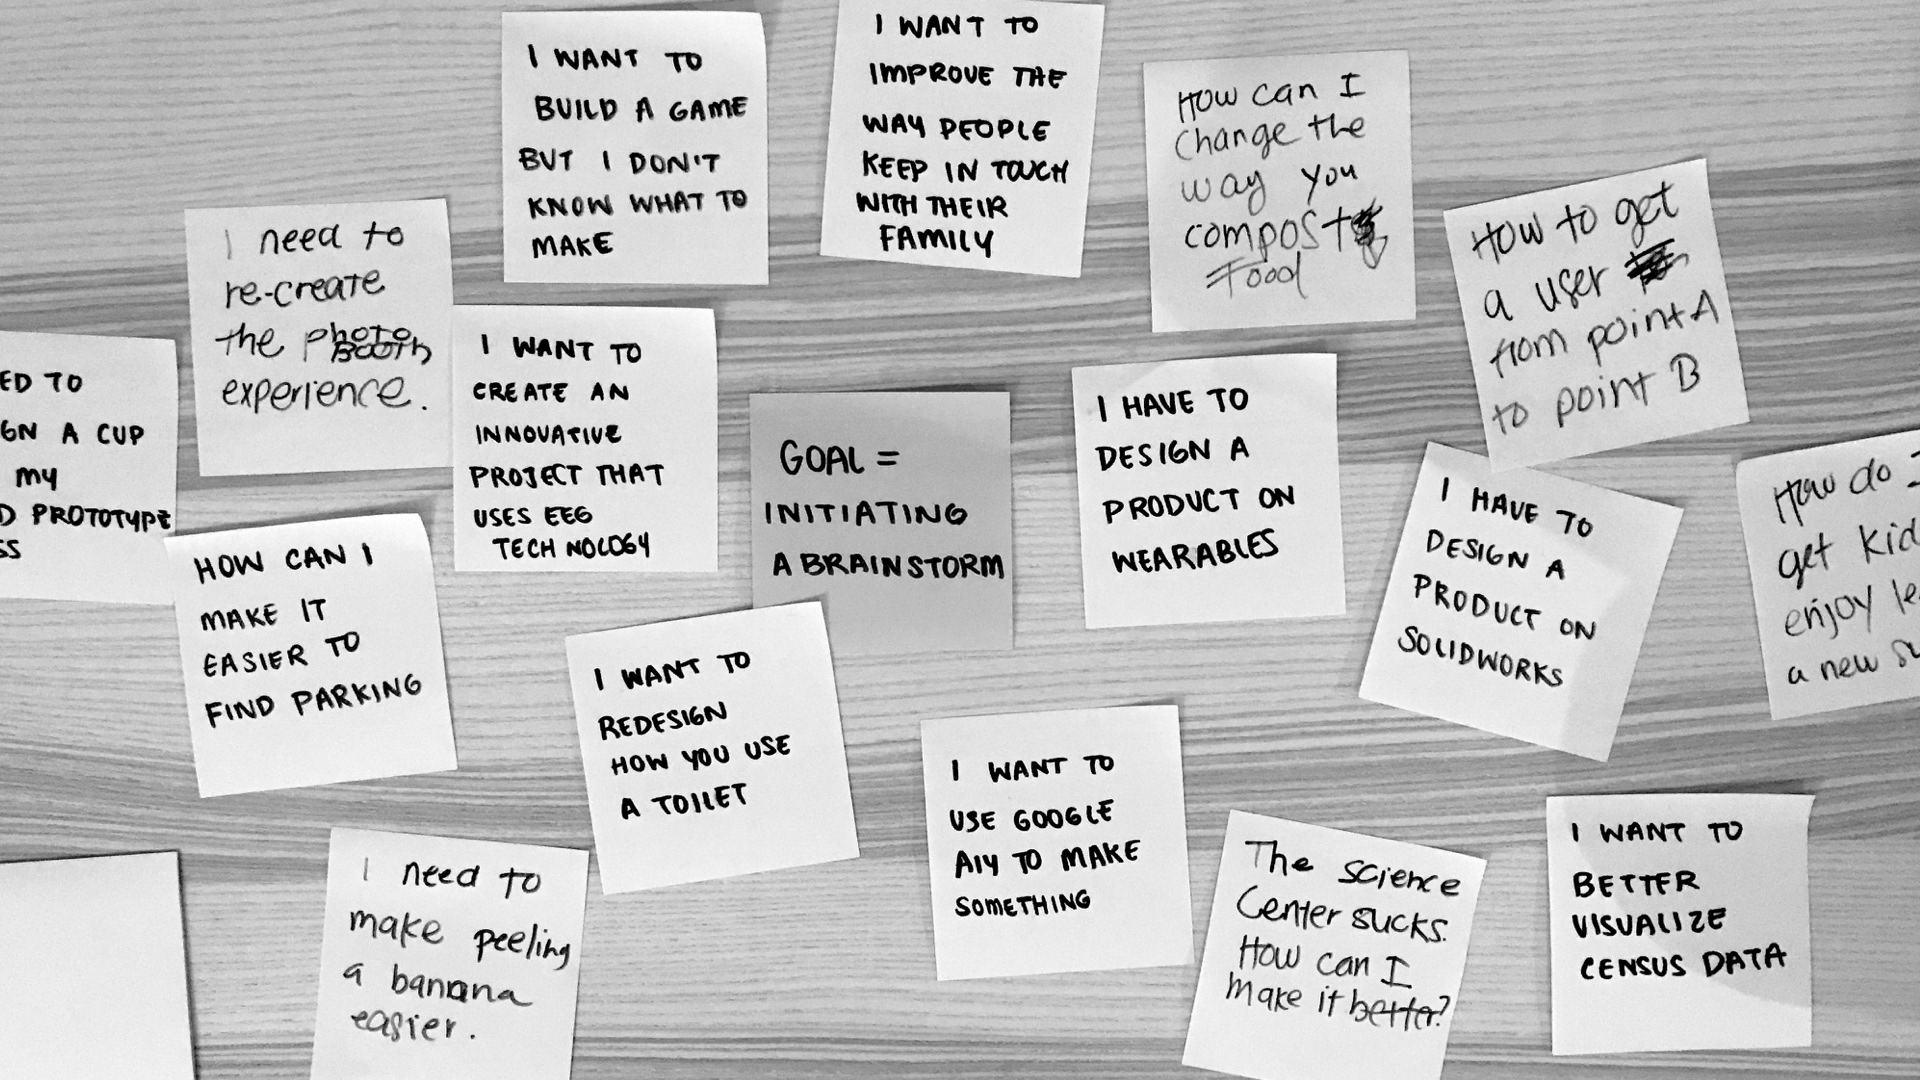 I WANT TO
BUILD A GAME
BUT I DON'T
KNOW WHAT TO
MAKE
I WANT TO
IMPROVE THE
WAY PEOPLE
KEEP IN TOUCH
WITH THEIR
FAMILY
How can I
change the
way you
compost
Food
How to get
a user
from point A
to point B
I need to
re-create
the photo
BOOTH
experience.
ED TO
GN A CUP
MY
D PROTOTYPE
SS
I WANT TO
CREATE AN
INNOVATIVE
PROJECT THAT
USES EEG
TECHNOLOGY
GOAL =
INITIATING
A BRAINSTORM
I HAVE TO
DESIGN A
PRODUCT ON
WEARABLES
I HAVE TO
DESIGN A
PRODUCT ON
SOLIDWORKS
How do I
get kid
enjoy le
a new su
HOW CAN I
MAKE IT
EASIER TO
FIND PARKING
I WANT TO
REDESIGN
HOW YOU USE
A TOILET
I WANT TO
USE GOOGLE
AIY TO MAKE
SOMETHING
I need to
make peeling
a banana
easier.
The science
Center sucks.
How can I
make it better?
I WANT TO
BETTER
VISUALIZE
CENSUS DATA